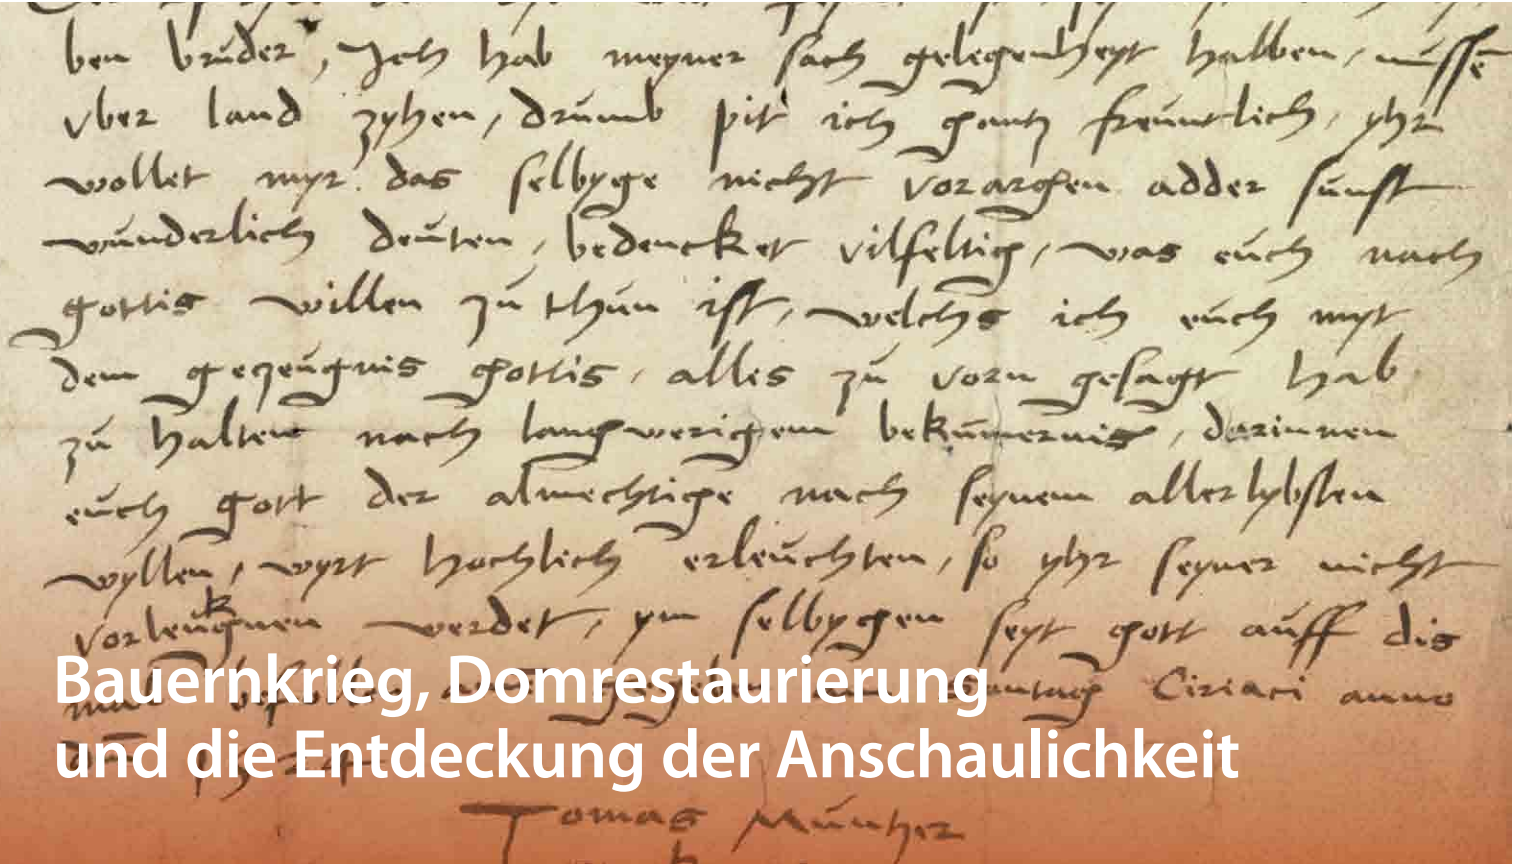 ben bruder, Ich hab meyner sach gelegenheyt halben, mussē
vber land zyhen, drumb pit ich gantz freuntlich, yhr
wollet myr das selbyge nicht vorargen adder sunst
wunderlich deuten, bedencket vilfeltig, was euch nach
gottis willen zu thun ist, welchs ich euch myt
dem gezeugnis gottis, alles zu vorn gesagt hab
zu halten nach langwerigem bekummernis, darinnen
euch gott der almechtige nach seynem allerlybsten
wyllen, wyrt hochlich erleuchten, so yhr seyner nicht
vorleugknen werdet, ym selbygen seyt gott auff dis
mal Ciriaci anno
Bauernkrieg, Domrestaurierung
und die Entdeckung der Anschaulichkeit
Tomas Muntzer